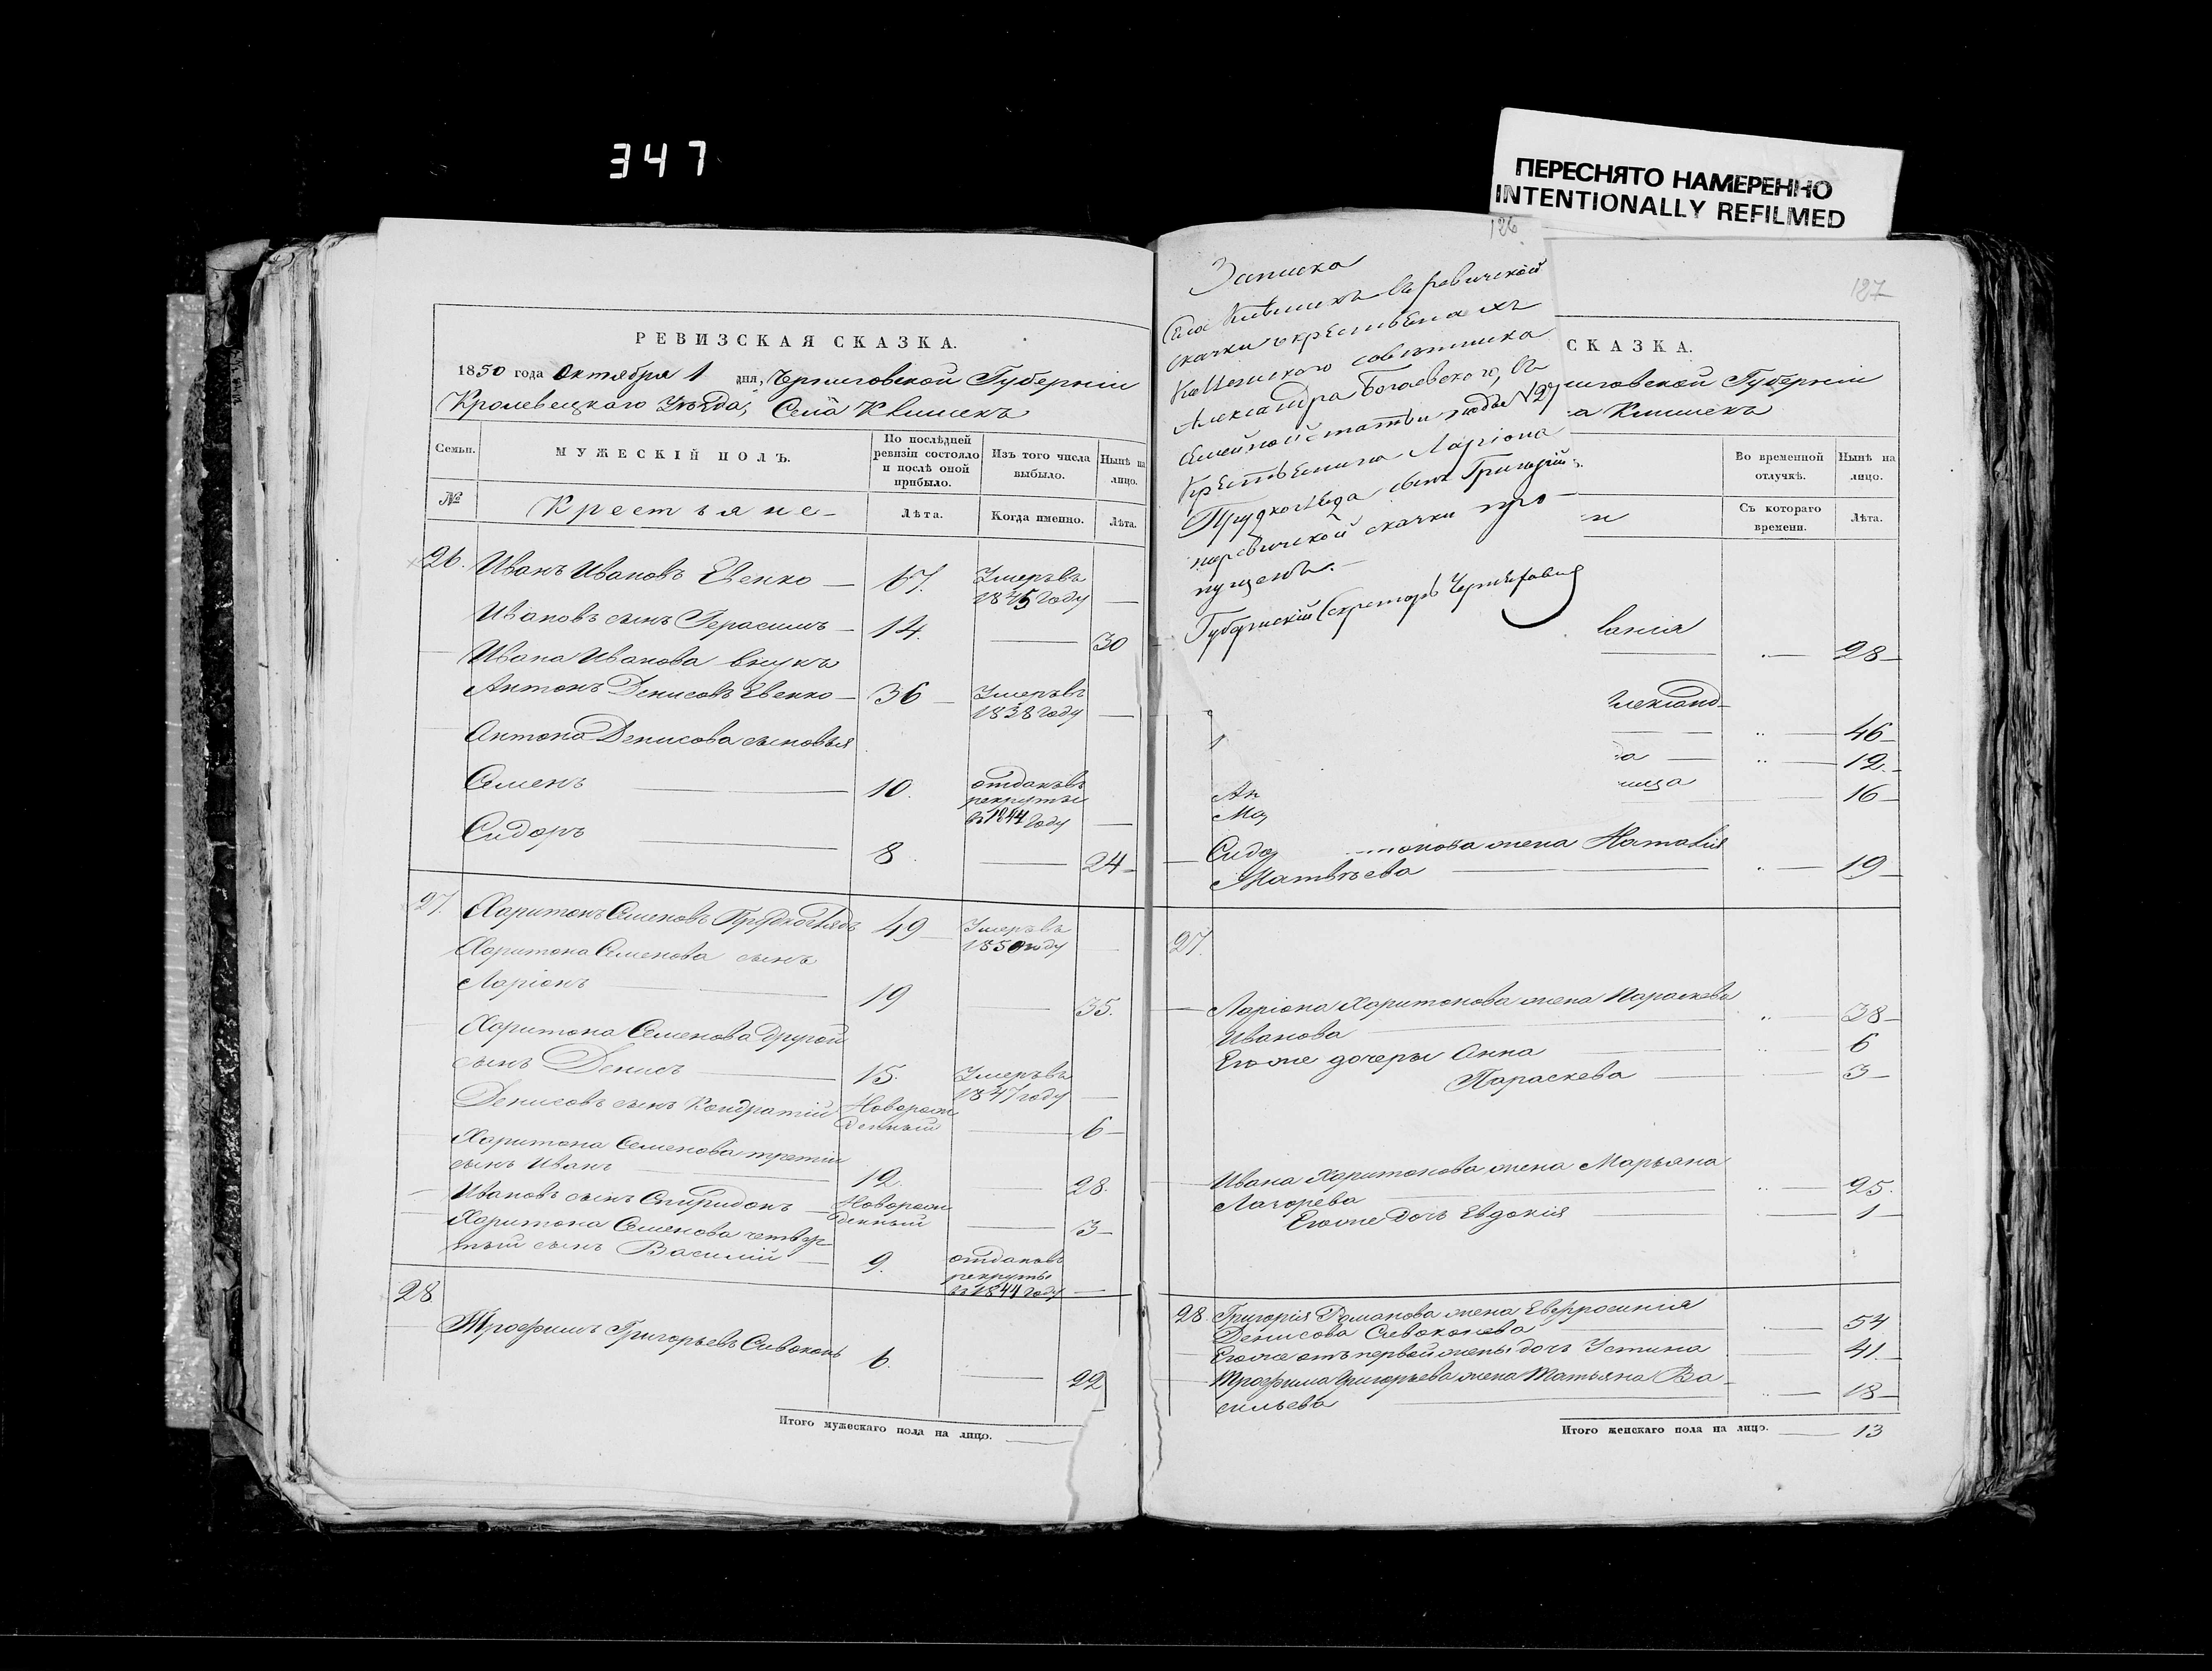 347
ПЕРЕСНЯТО НАМЕРЕННО
INTENTIONALLY REFILMED
РЕВИЗСКАЯ СКАЗКА.
1850 года Октября 1 дня, Черниговской Губерніи
Кролевецкого Уѣзда, Села Клишекъ
Семьи. МУЖЕСКІЙ ПОЛЪ. По послѣдней ревизіи состояло и послѣ оной прибыло. Изъ того числа выбыло. Нынѣ на лицо.
№ Крестьяне Лѣта. Когда именно. Лѣта.
26. Иванъ Ивановъ Евенко — 67. Умеръ въ
1845 году —
Ивановъ сынъ Герасимъ — 14 — 30
Ивана Иванова внукъ
Антонъ Денисовъ Евенко — 36 Умеръ въ
1838 году —
Антона Денисова сыновья
Семенъ — 10. отданъ въ
рекруты
въ 1844 году —
Сидоръ — 8. — 24
27. Харитонъ Семеновъ 49 Умеръ въ
1850 году —
Харитона Семенова сынъ
Ларіонъ — 19 — 35.
Харитона Семенова другой
сынъ Денисъ — 15. Умеръ въ
1847 году —
Денисовъ сынъ Кондратій Новорож
денный — 6
Харитона Семенова третій
сынъ Иванъ — 12. — 28.
Ивановъ сынъ Спиридонъ — Новорож
денный — 3
Харитона Семенова четвер-
тый сынъ Василій — 9. отданъ въ
рекруты
въ 1844 году —
28 Трофимъ Григорьевъ Сивоконь 6. — 22
Итого мужескаго пола на лицо. —
126
Записка
Села Клишекъ въ ревизской
скачки крестьена хъ
Колежского совѣтника
Александра Богаевского, въ
семейной статьи подъ №27
Крестьенина Ларіона
сынъ Григорій
ревизской скачки про-
пущенъ. —
Губернскій Секретарь
127
СКАЗКА.
иговской Губерніи
а Клишекъ
Во временной отлучкѣ. Нынѣ на лицо.
Съ котораго времени. Лѣта.
ланія
— „ — 28
лександ-
— „ — 46
ра — „ — 12
Ма ница 16
Сидо тонова жена Наталія
Матвѣева — „ — 19
27.
Ларіона Харитонова жена Параскева
Иванова — „ — 38
Его же дочери Анна — „ 6
Параскева — „ — 3
Ивана Харитонова жена Марьяна
— „ — 25.
Его же дочь Евдокія — „ — 1
28. Григорія Романова жена Евфросинія
Денисова Сивоконева — „ — 54
Его же отъ первой жены дочь Устина — 41
Трофима Григорьева жена Татьяна Ва-
сильева — „ — 18
Итого женскаго пола на лицо. — 13